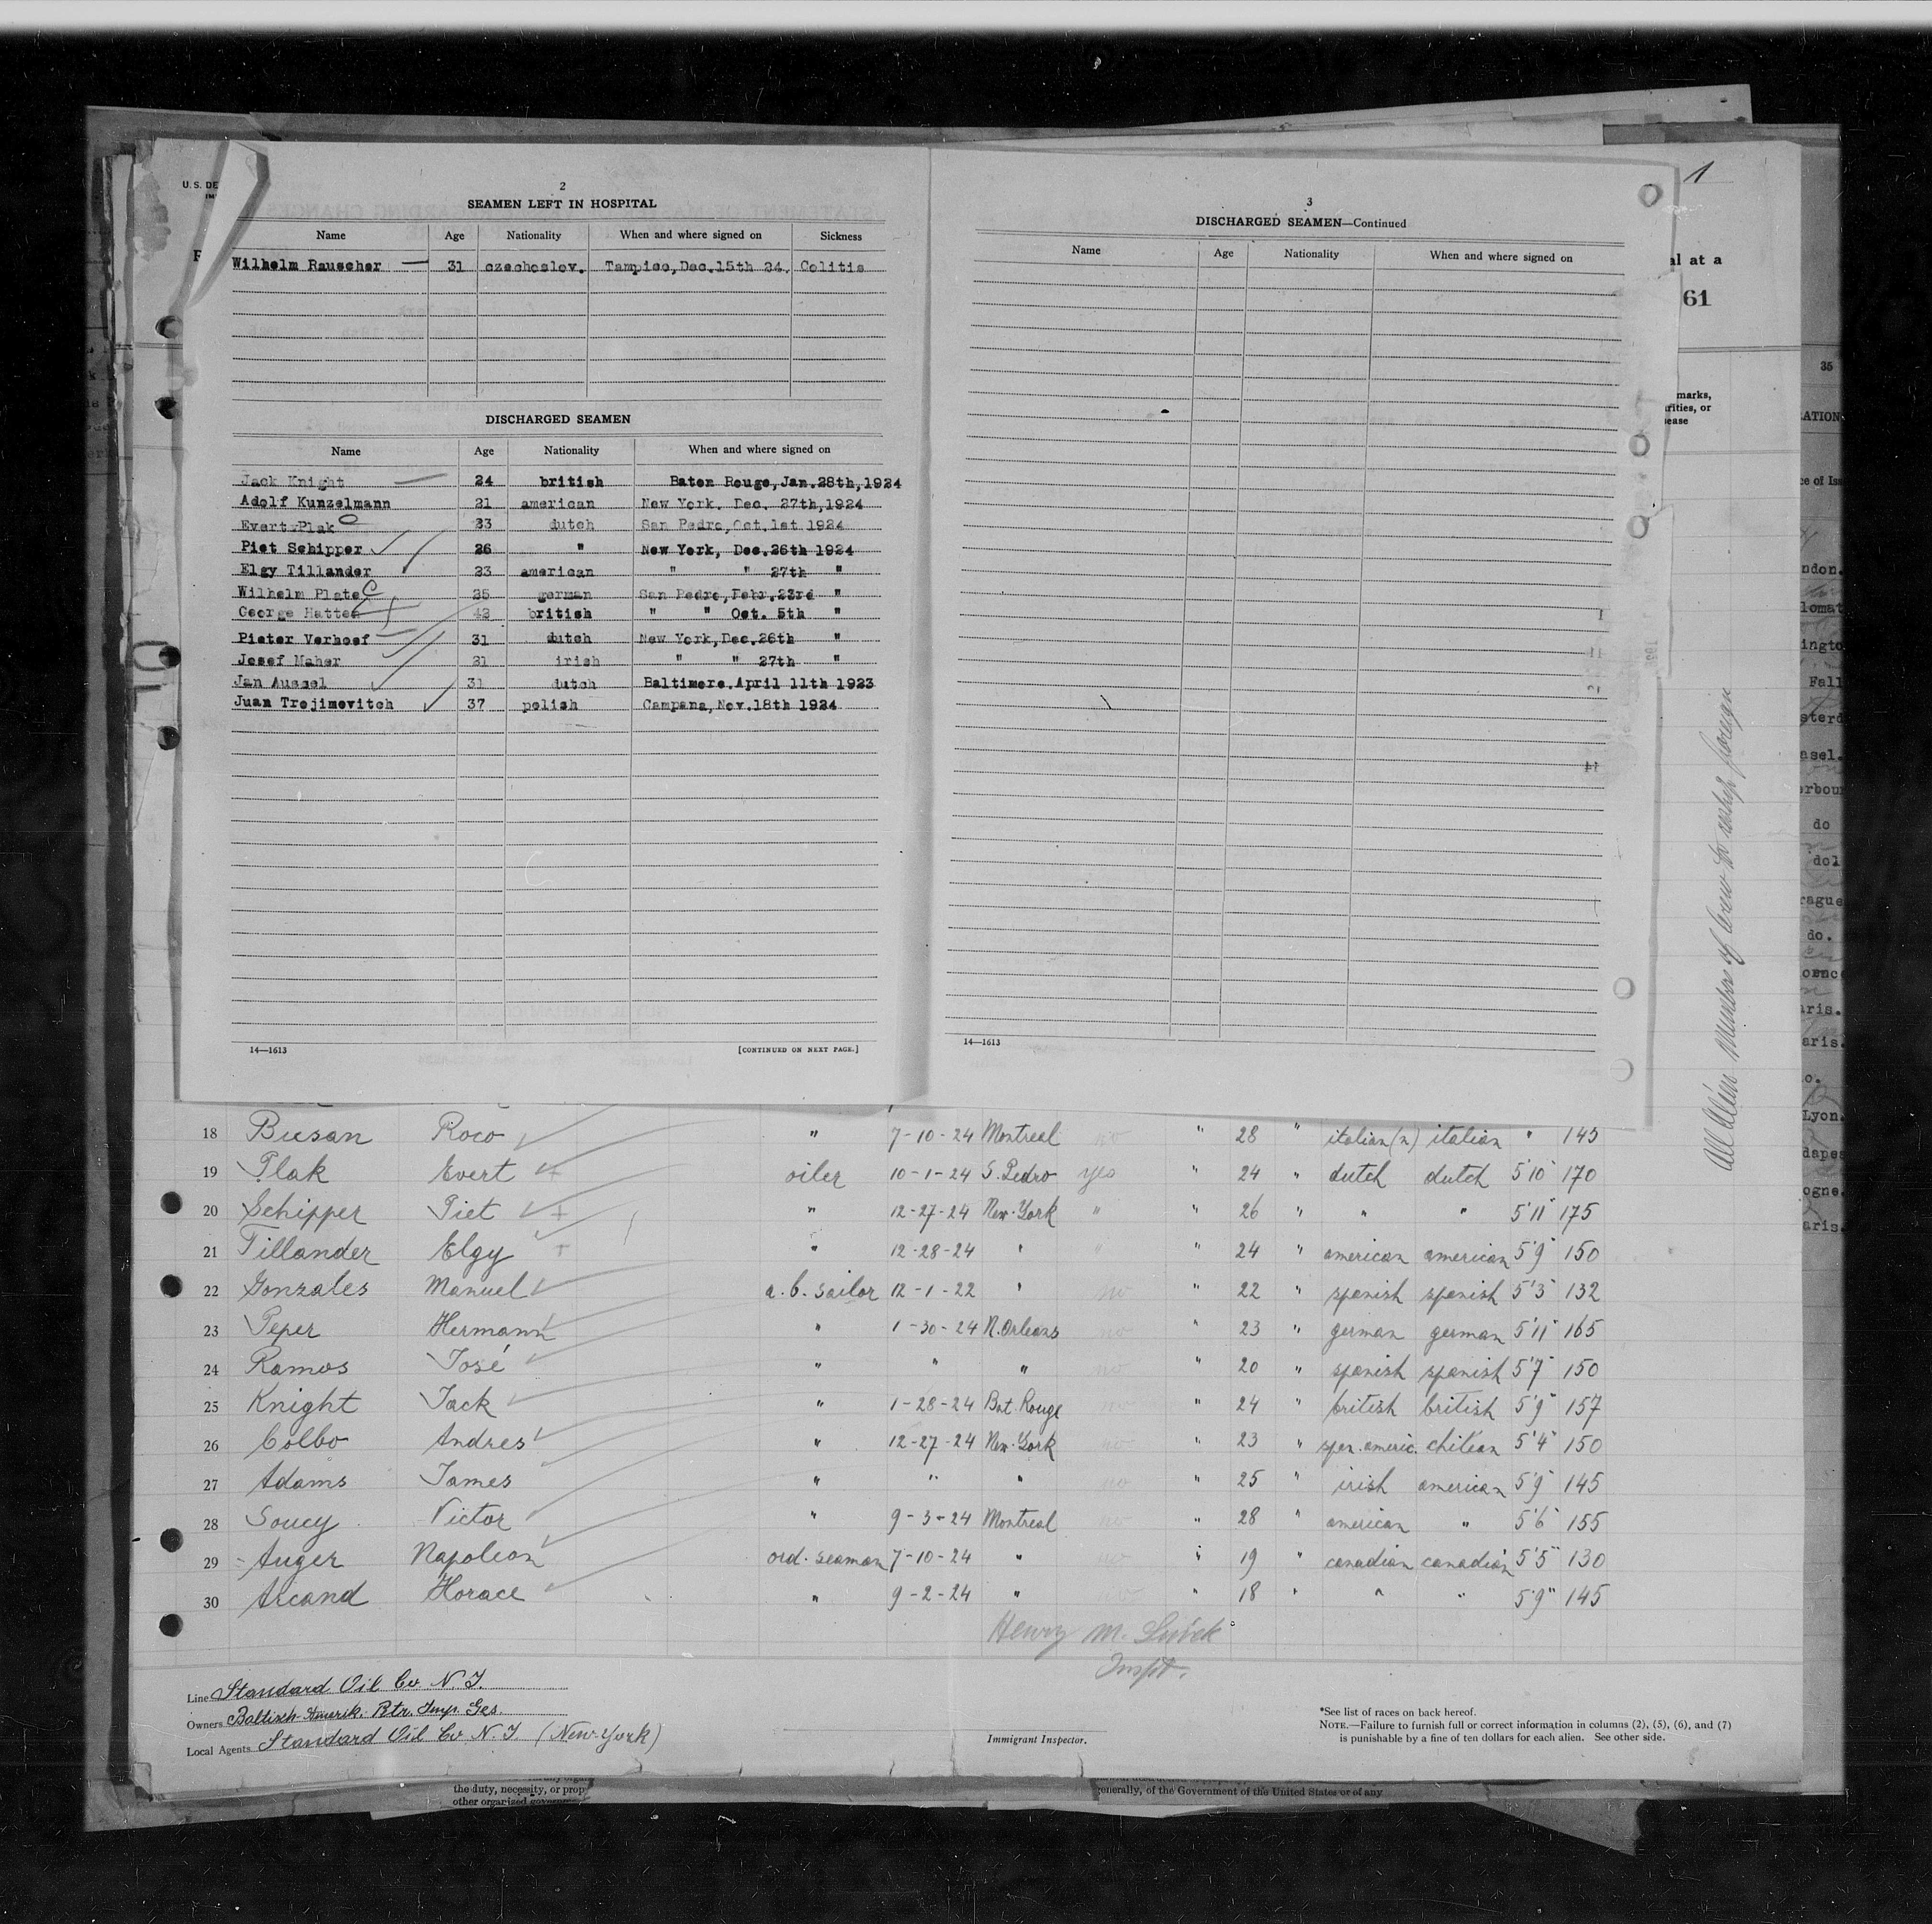 U. S. DE
2
SEAMEN LEFT IN HOSPITAL
Name Age Nationality When and where signed on Sickness
Wilhelm Rauscher 31 czechoslov. Tampico,Dec.15th 24. Colitis
DISCHARGED SEAMEN
Name Age Nationality When and where signed on
Jack Knight 24 british Baton Rouge,Jan.28th,1924
Adolf Kunzelmann 21 american New York. Dec. 27th,1924
Evert Plak 23 dutch San Pedro,Oct.1st 1924
Piet Schipper 26 " New York, Dec.26th 1924
Elgy Tillander 23 american " " 27th "
Wilhelm Plate 25 german San Pedro,Febr.23rd "
George Hatten 42 british " " Oct. 5th "
Pieter Verhoef 31 dutch New York,Dec.26th "
Josef Maher 21 irish " " 27th "
Jan Aussel 31 dutch Baltimore.April 11th 1923
Juan Trojimovitch 37 polish Campana,Nov.18th 1924
14—1613 [CONTINUED ON NEXT PAGE.]
3
DISCHARGED SEAMEN—Continued
Name Age Nationality When and where signed on
14—1613
1
al at a
61
marks,
rities, or
ease
35
ATION
ce of Iss
ndon.
lomat
ingto
Fall
sterd
asel.
erbour
do
dol
rague
do.
aris.
aris.
o.
Lyon.
dapes
ogne.
aris.
All Alien Members of Crew to reship foreign
18 Busan Roco " 7-10-24 Montreal no " 28 " italian (n) italian " 145
19 Plak Evert oiler 10-1-24 S. Pedro yes " 24 " dutch dutch 5'10" 170
20 Schipper Piet " 12-27-24 New-York " " 26 " " " 5'11" 175
21 Tillander Elgy " 12-28-24 " " " 24 " american american 5'9" 150
22 Gonzales Manuel a. b. sailor 12-1-22 " no " 22 " spanish spanish 5'3" 132
23 Peper Hermann " 1-30-24 N. Orleans no " 23 " german german 5'11" 165
24 Ramos José " " " no " 20 " spanish spanish 5'7" 150
25 Knight Jack " 1-28-24 Bat. Rouge no " 24 " british british 5'9" 157
26 Colbo Andres " 12-27-24 New-York no " 23 " span. americ. chilean 5'4" 150
27 Adams James " " " no " 25 " irish american 5'9" 145
28 Soucy Victor " 9-3-24 Montreal no " 28 " american " 5'6" 155
29 Auger Napoleon ord. seaman 7-10-24 " no " 19 " canadian canadian 5'5" 130
30 Arcand Horace " 9-2-24 " no " 18 " " " 5'9" 145
Henry M.
Inspt.
Line Standard Oil Co. N. J.
Owners Baltisch-Amerik. Petr. Imp. Ges.
Local Agents Standard Oil Co N. J (New-York)
Immigrant Inspector.
*See list of races on back hereof.
NOTE.—Failure to furnish full or correct information in columns (2), (5), (6), and (7)
is punishable by a fine of ten dollars for each alien. See other side.
the duty, necessity, or prop
other organized
generally, of the Government of the United States or of any